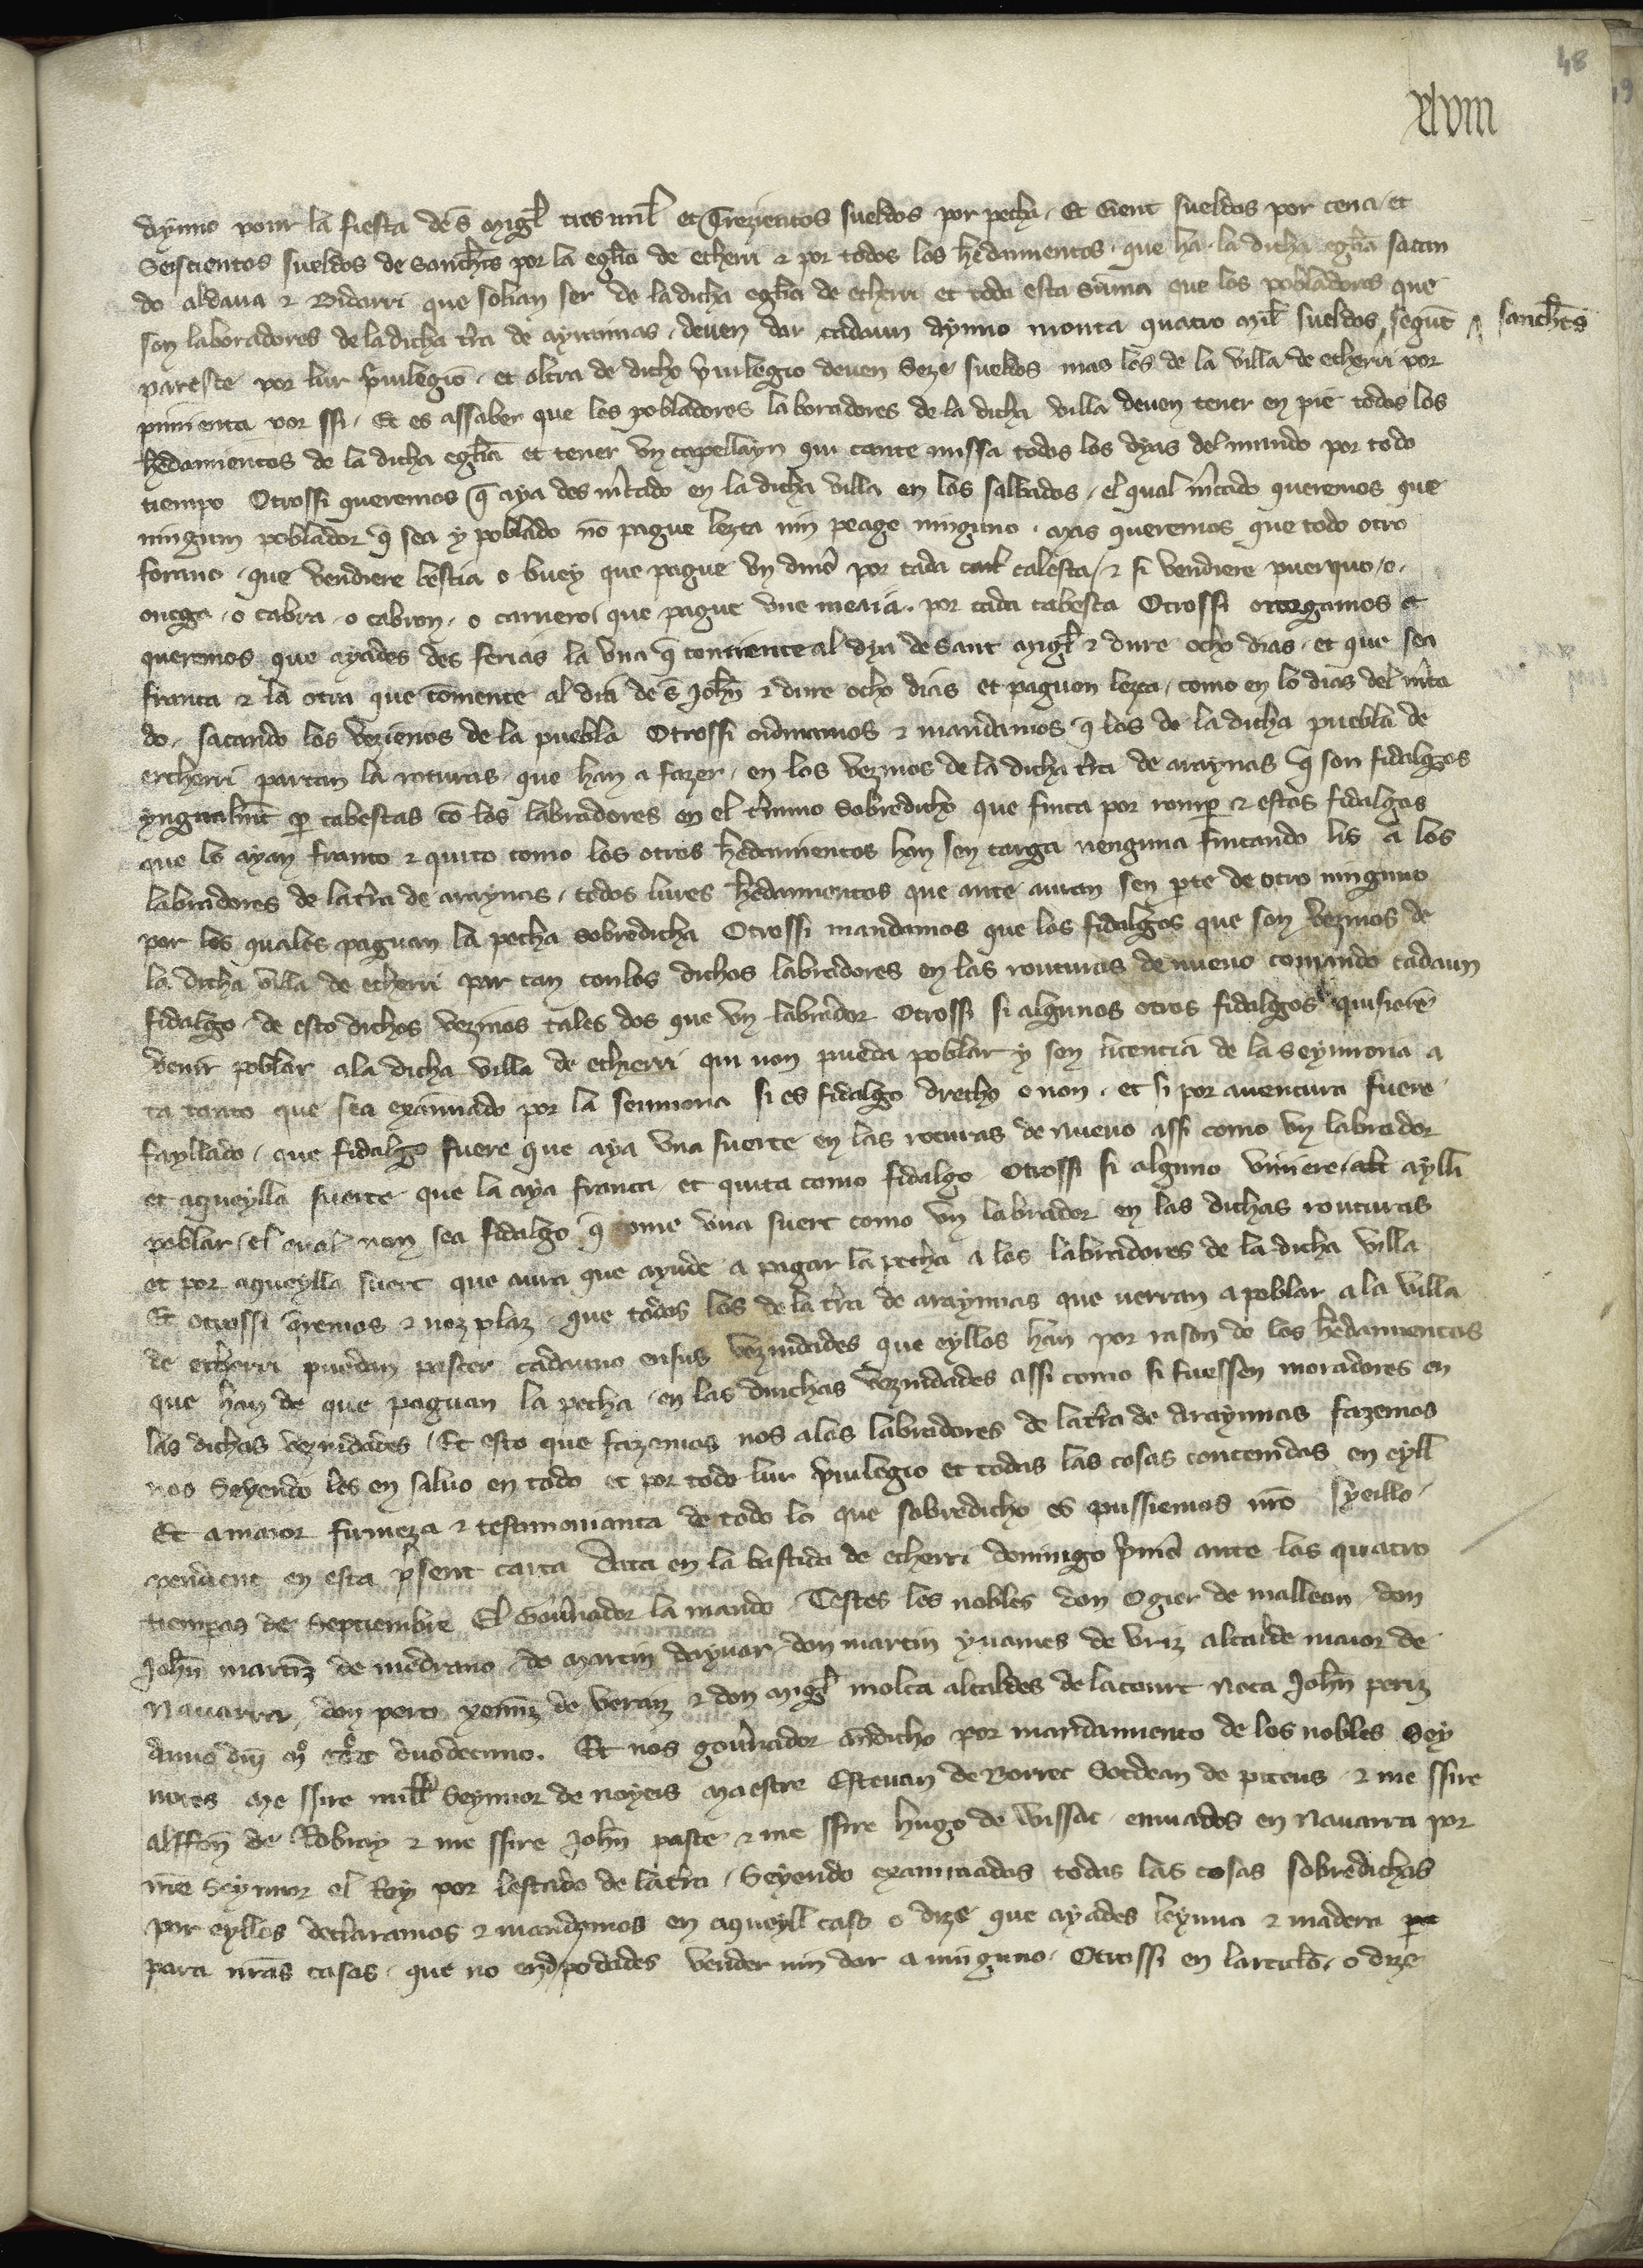 48
xlviii
daynno pour la fiesta de s̄ migl̄ tres mil et Trezientos sueldos por pecha. Et Cient sueldos por cena et
Seiscientos sueldos de Sanchetes por la egłia de etherri & por todos los hēdamientos que ha la dicha egłia sacan
do aldaua & Bidarri que solian ser de la dicha egłia de etherri et toda esta sūma que los pobladores que
son laboradores de la dicha tr̄ra de aynnas deuen dar cadaun aynno monta quatro mil sueldos segunt sanchetes
paresce por lur p̄uilegio. et oltra de dicho p̄uilegio deuen Seze sueldos mas los de la villa de etherri por
pimienta por ssi. Et es assaber que los pobladores laboradores de la dicha villa deuen tener en pie todos los
hēdamientos de la dicha egłia et tener vn capellayn qui cante missa todos los dyas del mundo por todo
tiempo Otrossi queremos q̄ aya des m̄cado en la dicha villa en los salbados, el qual m̄cado queremos que
ningun poblador q̄ sea y poblado nō pague lezta nin peage ninguno. mas queremos que todo otro
forano que vendiere bestia o buey que pague vn dinō por cada cabesca & si vendiere puerquo, o
ouega o cabra o cabron o carnero que pague vne meaia por cada cabesca Otrossi otorgamos et
queremos que ayades des ferias la vna q̄ comience al dya de Sant migl̄ & dure ocho dias. et que sea
franca & la otra que comence al dia de s̄ Joh̄n & dure ocho dias et paguen lezta, como en lo dias del m̄ca
do, sacando los vezienos de la puebla Otrossi ordenamos & mandamos q̄ los de la dicha puebla de
etcherri partan la roturas que han a fazer en los vezinos de la dicha tr̄ra de araynas q̄ son fidalgos
yngualm̄t p̄ cabescas cō los labradores en el t̄mino sobredicho que finca por romp̄ & estos fidalgos
que lo ayan franco & quito como los otros hēdamientos han sen carga nenguna fincando lis a los
labradores de la tr̄ra de araynas, todos lures hēdamientos que ante auian sen p̄te de otro ninguno
por los quales paguan la pecha sobredicha Otrossi mandamos que los fidalgos que son vezinos de
la dicha villa de etherri par tan con los dichos labradores en las routuras de nueuo tomando cadaun
fidalgo de esto dichos vezinos tales dos que vn labrador Otrossi si algunos otros fidalgos quisierē
venir poblar a la dicha villa de etcherri qui non pueda poblar y sen licencia de la seynnoria a
ta tanto que sea exāinado por la sennoria si es fidalgo drecho o non. et si por auentura fuere
fayllado que fidalgo fuere que aya vna suerte en las roturas de nueuo assi como vn labrador
et aqueylla suerte que la aya franca et quita como fidalgo Otrossi si alguno viniere aylli
poblar el qual non sea fidalgo q̄ tome vna suert como vn labrador en las dichas routuras
et por aqueylla suert que aura que ayude a pagar la pecha a los labradores de la dicha villa
Et otrossi q̄remos & noz plaz que todos los de la tr̄ra de araynnas que uerran a poblar a la villa
de etcherri puedan pascer cadauno en sus vezindades que eyllos han por rason de los hēdamientos
que han de que paguan la pecha en las duichas vezindades assi como si fuessen moradores en
las dichas vezindades. Et esto que fazemos nos a los labradores de la tr̄ra de araynnas fazemos
nos Seyendo les en saluo en todo et por todo lur p̄uilegio et todas las cosas contenidas en eyll
Et a maior firmeza & testimoniança de todo lo que sobredicho es pussiemos nr̄o syeillo
pendient en esta p̄sent carta Data en la bastida de etcherri domingo p̄mō ante las quatro
tiemp̄as de Septiembre El Gou̅nador la mando Testes los nobles don Ogier de malleon don
Joh̄n martīz de medrano, do martin dayuar, don martin yuaines de vriz alcalde maior de
Nauarra, don pero xemīz de veraiz & don migl̄ molca alcaldes de la court Nota Joh̄n periz
Anno dn̄j mº cccº duodecimo. Et nos gou̅nador andicho por mandamiento de los nobles Sey
nores me ssire mill̄ Seynnor de noyers maestre esteuan de Borret Sotdean de piteus & me ssire
alffon̄ de Robray & me ssire Joh̄n paste & me ssire hugo de vissac enuiados en nauarra por
nr̄e Seynnor el Rey por lestado de la tr̄ra, Seyendo examinadas todas las cosas sobredichas
por eyllos declaramos & mandamos en aqueyll caso o dize que ayades leynna & madera pa
para uras casas, que no end podades vender nin dar a ninguno. Otrossi en larticlō, o dize